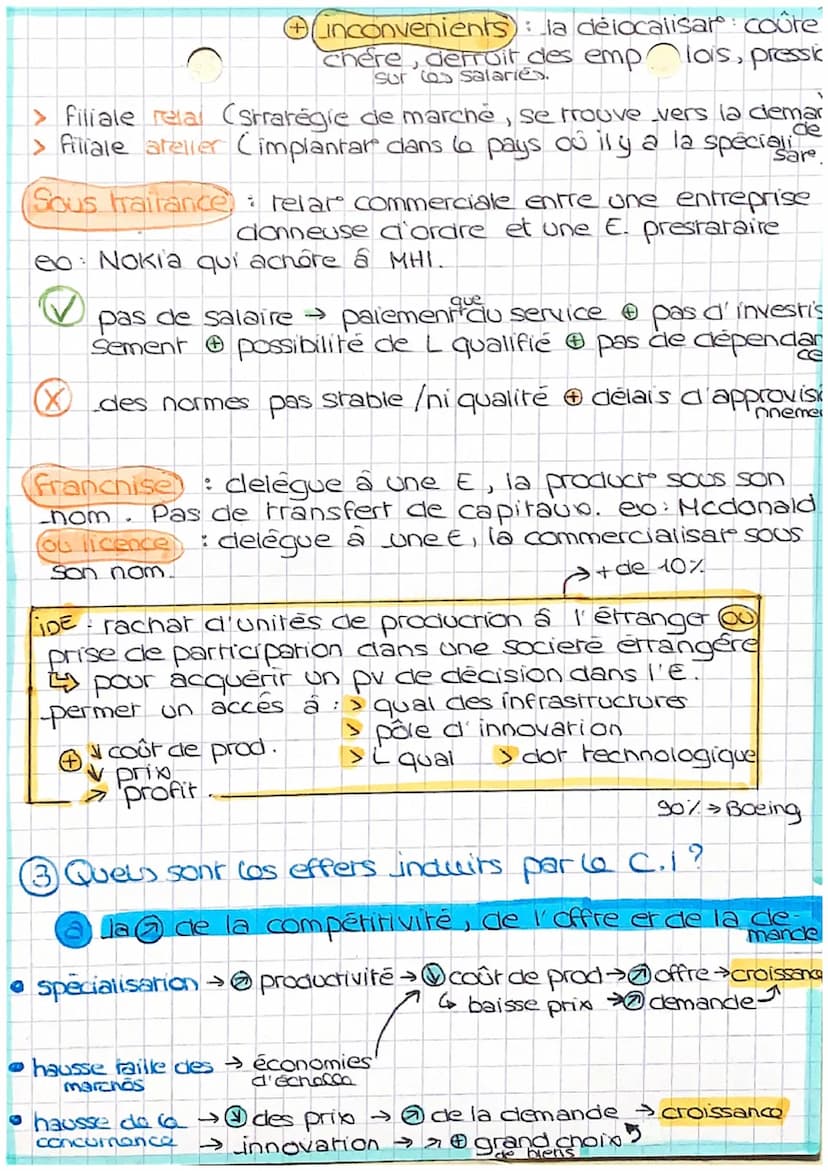 ⊕ inconvenients : la délocalisat° : coûte
chère, detruit des emplois, pressio
sur les salariés.
> filiale relai (stratégie de marché, se trouve vers la deman
de
> filiale atelier (implantat° dans le pays où il y a la spéciali
sat°.
Sous traitance : relat° commerciale entre une entreprise
donneuse d'ordre et une E. prestataire
ex : Nokia qui achète à MHI.
✓ pas de salaire → paiement que du service ⊕ pas d'investis
sement ⊕ possibilité de L qualifié ⊕ pas de dépendan
ce
X des normes pas stable / ni qualité ⊕ délais d'approvisio
nnemen
franchise : delégue à une E, la product° sous son
nom. Pas de transfert de capitaux. ex : Mcdonald
ou licence : delégue à une E, la commercialisat° sous
son nom.
→ + de 10%
iDE : rachat d'unités de production à l'étranger ou
prise de participation dans une societé étrangère
↳ pour acquérir un pv de décision dans l'E.
permet un accés à : > qual des infrastructures
> pôle d'innovation
> L qual > dot technologique
⊕ ↘ coût de prod.
↘ prix
↗ profit.
90% → Boeing
③ Quels sont les effets induits par le C.I ?
a la ↗ de la compétitivité, de l'offre et de la de-
mande
• spécialisation → ↗ productivité → ↓ coût de prod → ↗ offre → croissance
↳ baisse prix → ↗ demande
• hausse taille des → économies
marchés d'échelle
• hausse de la → ↓ des prix → ↗ de la demande → croissance
concurrence → innovation → ↗ ⊕ grand choix
de biens